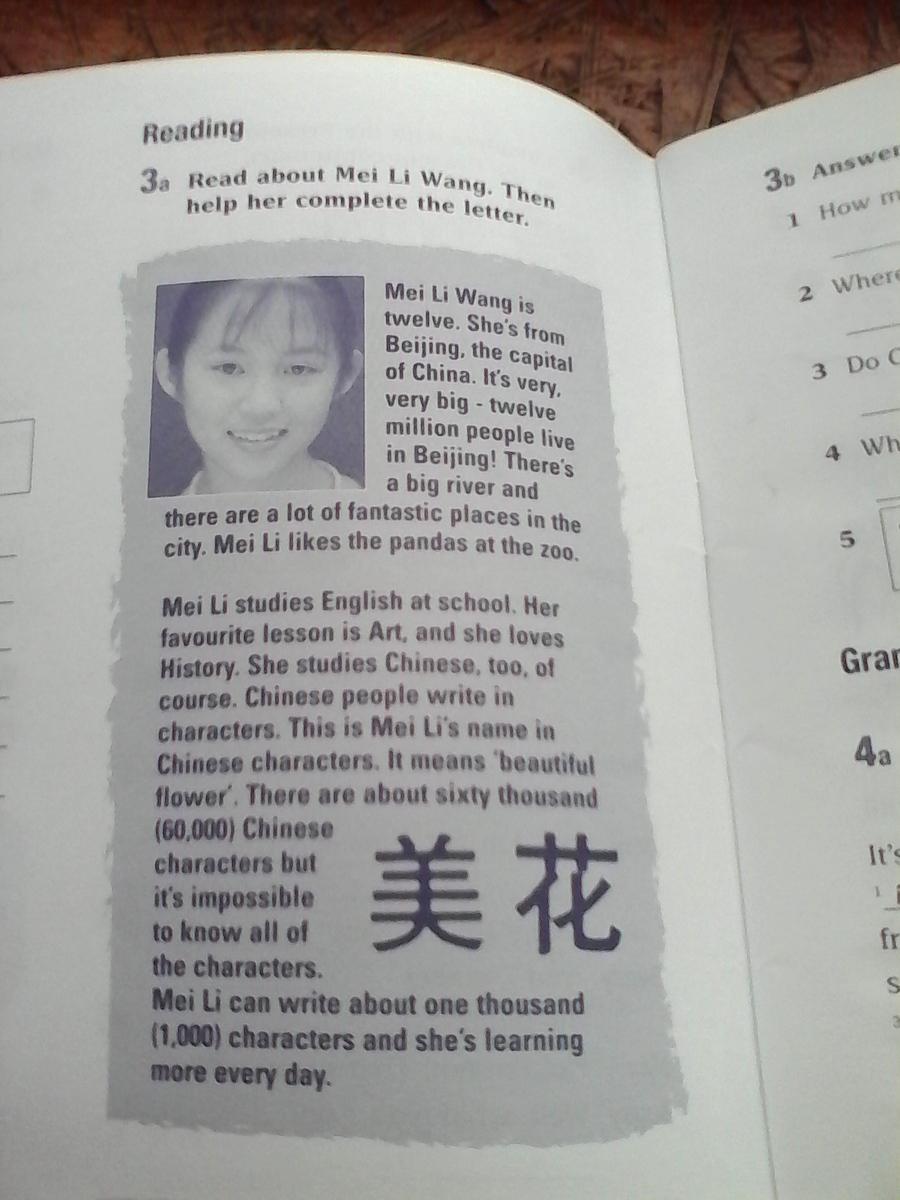 Reading
3a Read about Mei Li Wang. Then
help her complete the letter.
Mei Li Wang is
twelve. She's from
Beijing, the capital
of China. It's very,
very big - twelve
million people live
in Beijing! There's
a big river and
there are a lot of fantastic places in the
city. Mei Li likes the pandas at the zoo.
Mei Li studies English at school. Her
favourite lesson is Art, and she loves
History. She studies Chinese, too, of
course. Chinese people write in
characters. This is Mei Li's name in
Chinese characters. It means 'beautiful
flower'. There are about sixty thousand
(60,000) Chinese
characters but
it's impossible
to know all of
the characters.
美花
Mei Li can write about one thousand
(1,000) characters and she's learning
more every day.
3b Answer
1 How m
2 Where
3 Do C
4 Wh
5
Gran
4a
It's
1
fr
s